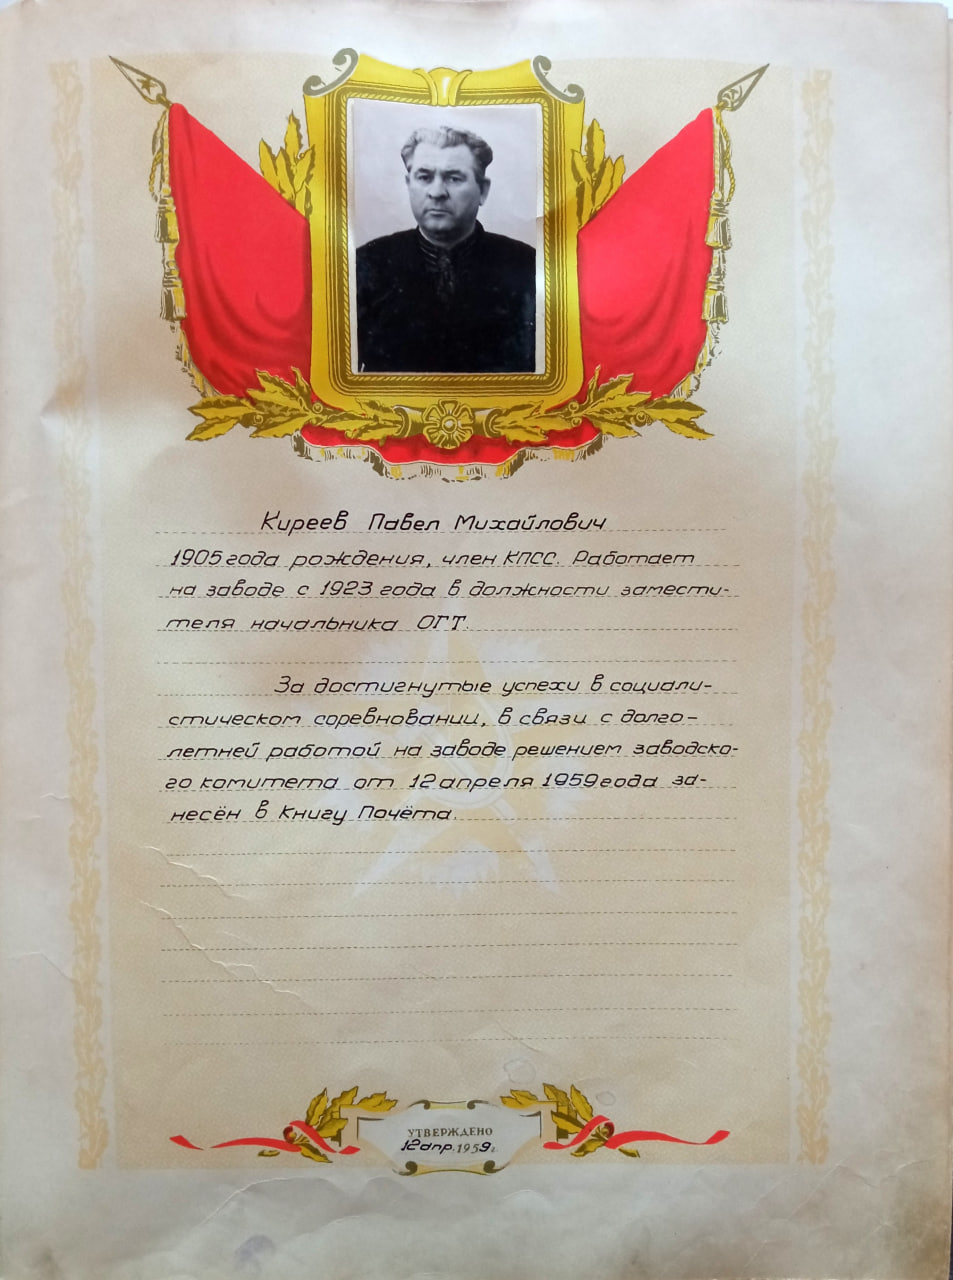 Киреев Павел Михайлович
1905 года рождения, член КПСС. Работает
на заводе с 1923 года в должности замести-
теля начальника ОГТ.
За достигнутые успехи в социали-
стическом соревновании, в связи с долго-
летней работой на заводе решением заводско-
го комитета от 12 апреля 1959 года за-
несён в Книгу Почёта.
УТВЕРЖДЕНО
12 апр. 1959 г.